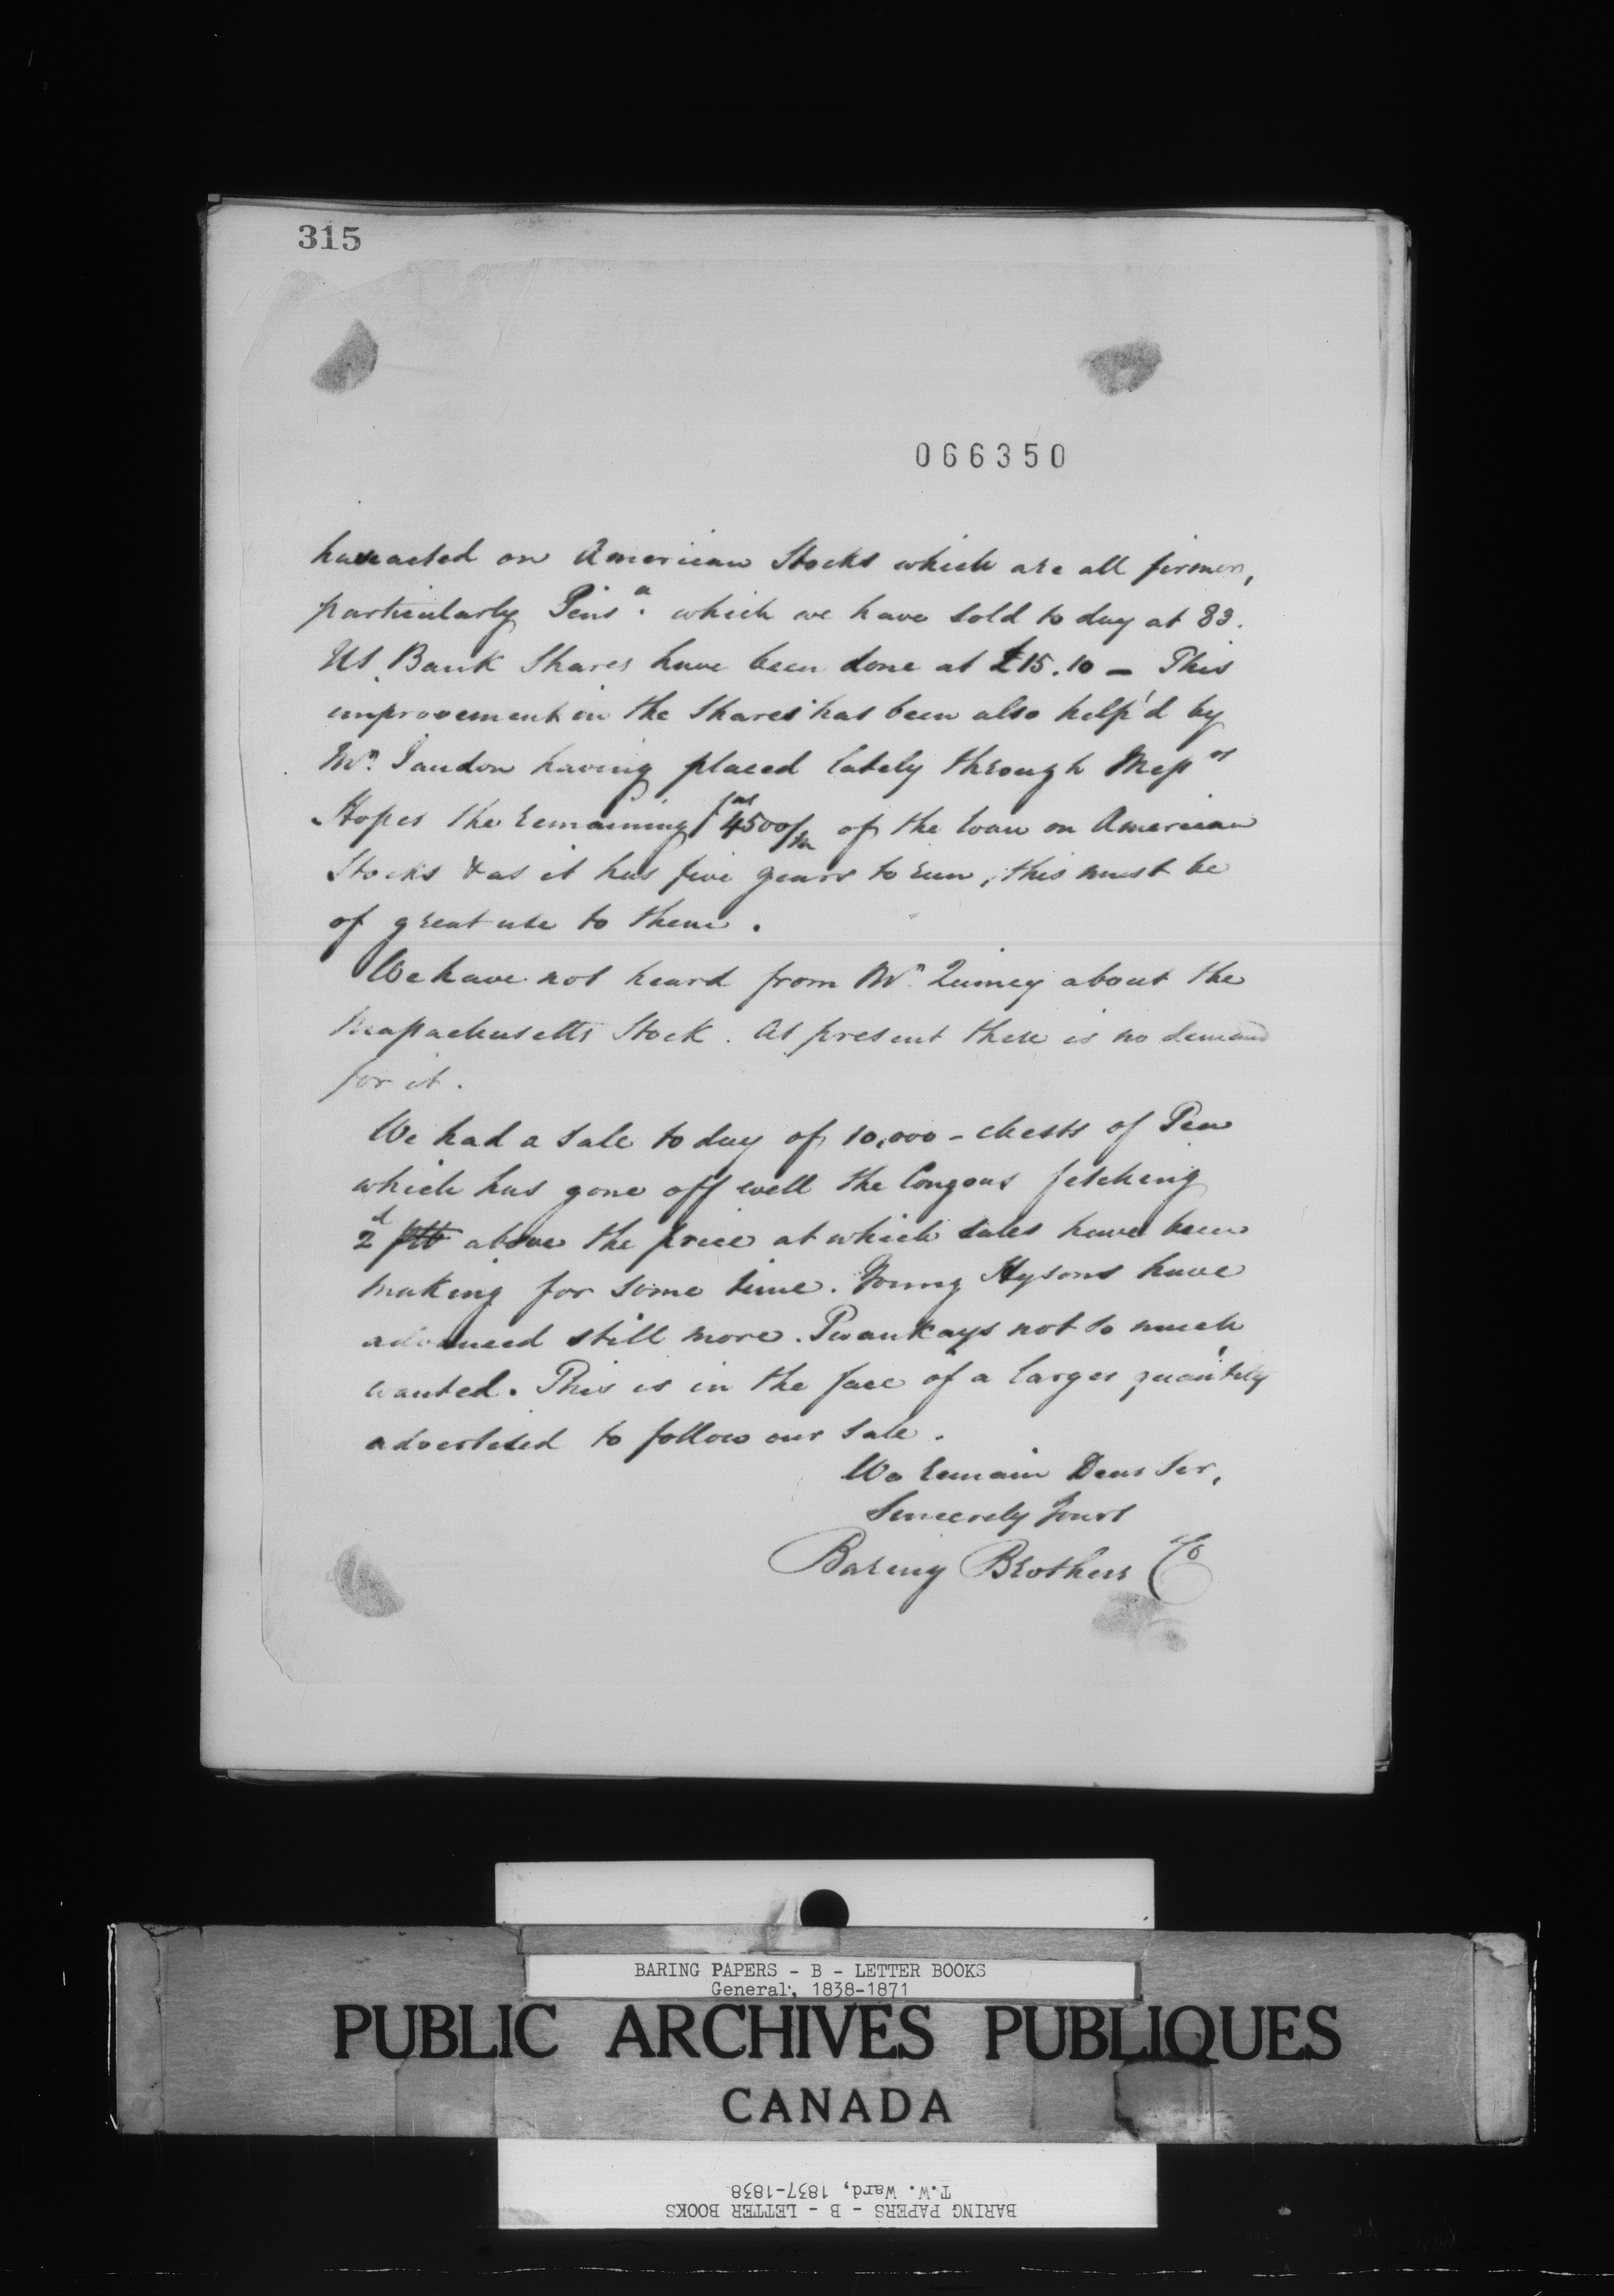 315
066350
has acted on American Stocks which are all firmer,
particularly Pensa. which we have sold to day at 83.
US. Bank Shares have been done at £15.10 – This
improvement in the Shares has been also help'd by
Mr. Jaudon having placed lately through Messrs
Hopes the remaining 4500/m of the loan on American
Stocks & as it has five years to run, this must be
of great use to them.
We have not heard from Mr. Quincy about the
Massachusetts Stock. At present there is no demand
for it.
We had a sale to day of 10,000 – chests of Tea
which has gone off well the Congous fetching
2d above the price at which sales have been
making for some time. Young Hysons have
advanced still more. Twankays not so much
wanted. This is in the face of a larger quantity
advertised to follow our sale.
We remain Dear Sir,
Sincerely Yours
Baring Brothers & Co
BARING PAPERS - B - LETTER BOOKS
General, 1838-1871
PUBLIC ARCHIVES PUBLIQUES
CANADA
BARING PAPERS - B - LETTER BOOKS
T.W. Ward, 1837-1838